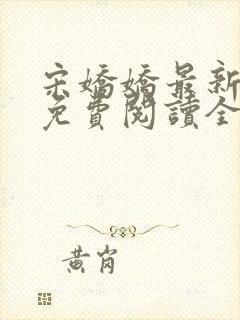 宋嬌嬌最新
免費閱讀全
黃崗